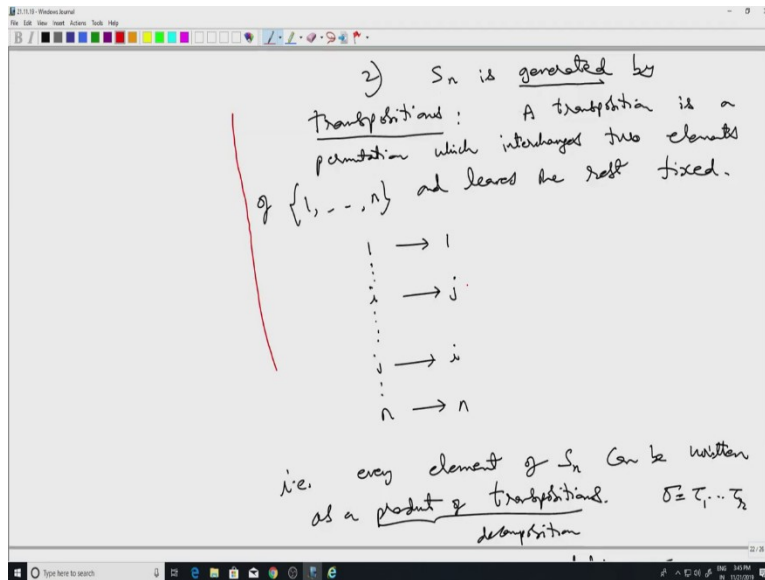 21.11.19 - Windows Journal
File Edit View Insert Actions Tools Help
2) Sn is generated by
transpositions : A transposition is a
permutation which interchanges two elements
of {1, - - , n} and leaves the rest fixed.
1 → 1
i → j
j → i
n → n
i.e. every element of Sn can be written
as a product of transpositions. σ = τ1 ... τr
decomposition
22/26
Type here to search
ENG 3:45 PM
IN 11/21/2019